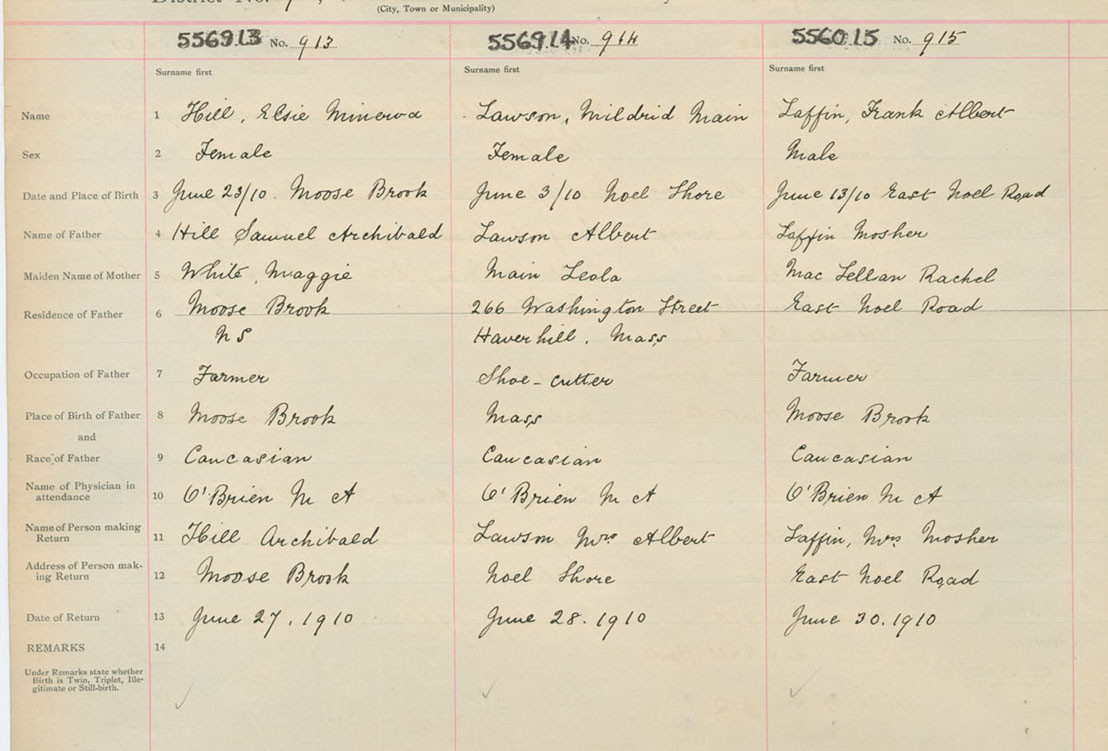 (City, Town or Municipality)
556913 No. 913 556914 No. 914 556015 No. 915
Surname first Surname first Surname first
Name 1 Hill, Elsie Minerva Lawson, Mildrid Main Laffin, Frank Albert
Sex 2 Female Female Male
Date and Place of Birth 3 June 23/10. Moose Brook June 3/10 Noel Shore June 13/10 East Noel Road
Name of Father 4 Hill Samuel Archibald Lawson Albert Laffin Mosher
Maiden Name of Mother 5 White, Maggie Main Leola Mac Lellan Rachel
Residence of Father 6 Moose Brook 266 Washington Street East Noel Road
N S Haverhill. Mass
Occupation of Father 7 Farmer Shoe-cutter Farmer
Place of Birth of Father 8 Moose Brook Mass Moose Brook
and
Race of Father 9 Caucasian Caucasian Caucasian
Name of Physician in
attendance 10 O'Brien M A O'Brien M A O'Brien M A
Name of Person making
Return 11 Hill Archibald Lawson Mrs Albert Laffin, Mrs Mosher
Address of Person mak-
ing Return 12 Moose Brook Noel Shore East Noel Road
Date of Return 13 June 27, 1910 June 28. 1910 June 30. 1910
REMARKS 14
Under Remarks state whether
Birth is Twin, Triplet, Ille-
gitimate or Still-birth.